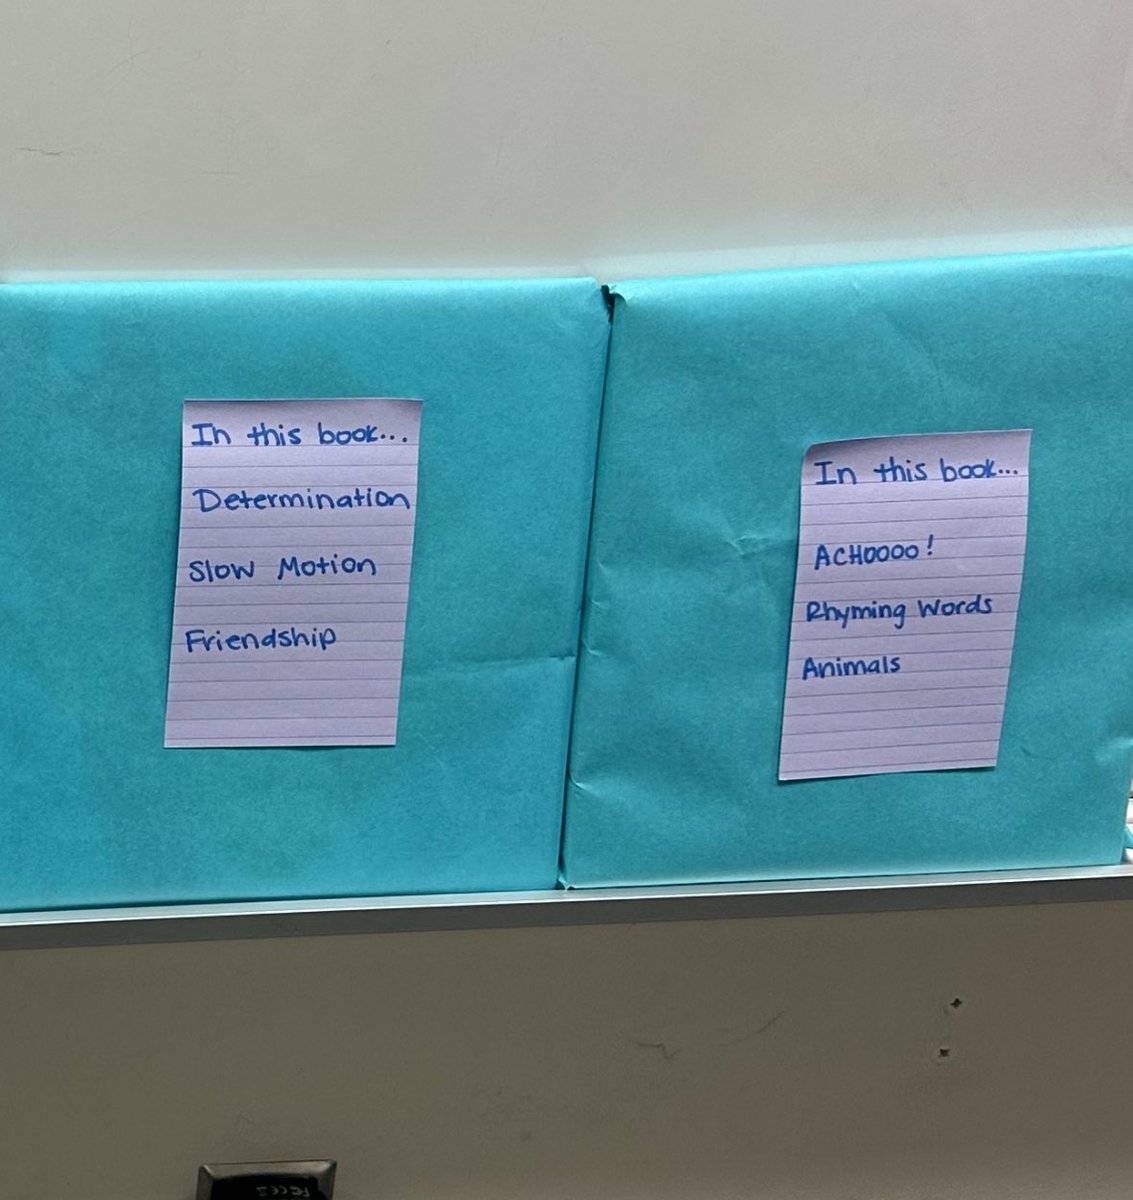 In this book...
Determination
Slow Motion
Friendship
In this book...
ACHOOOO!
Rhyming Words
Animals